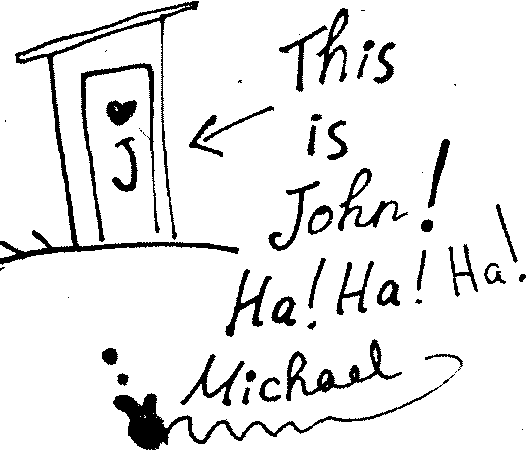 J
This
is
John!
Ha! Ha! Ha!
Michael